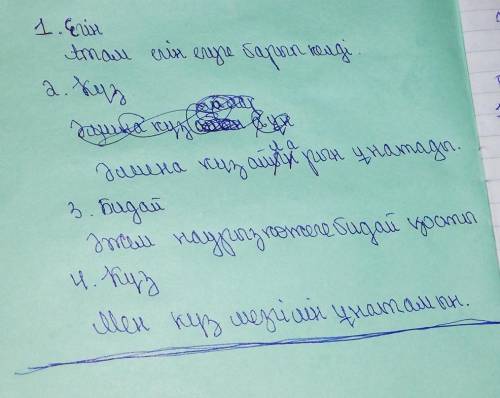 1. Егін
Атам егін егуге барып келді.
2. Күз
Әлина күз
Әлиена күз айларын ұнатады.
3. Бидай
Әжем наурыз көжеге бидай қосты
4. Күз
Мен күз мезгілін ұнатамын.